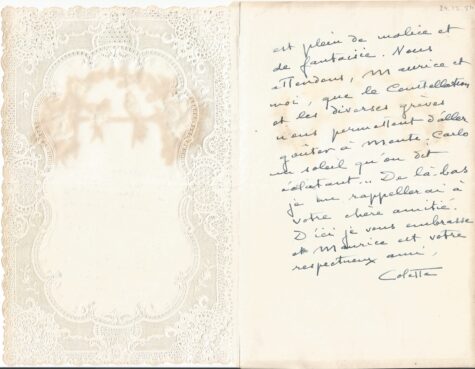 est plein de malice et
de fantaisie. Nous
attendons, Maurice et
moi, que le Constellation
et les diverses grèves
nous permettent d'aller
goûter à Monte-Carlo
un soleil qu'on dit
éclatant... De là-bas
je me rappellerai à
votre chère amitié.
D'ici je vous embrasse
et Maurice est votre
respectueux ami,
Colette